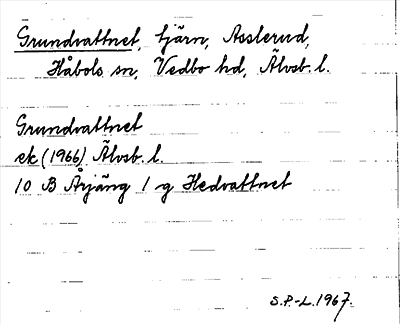 Grundvattnet, tjärn, Asslerud,
Håbols sn, Vedbo hd, Älvsb. l.
Grundvattnet
ek (1966) Älvsb. l.
10 B Årjäng 1 g Hedvattnet
S.P.-L. 1967.